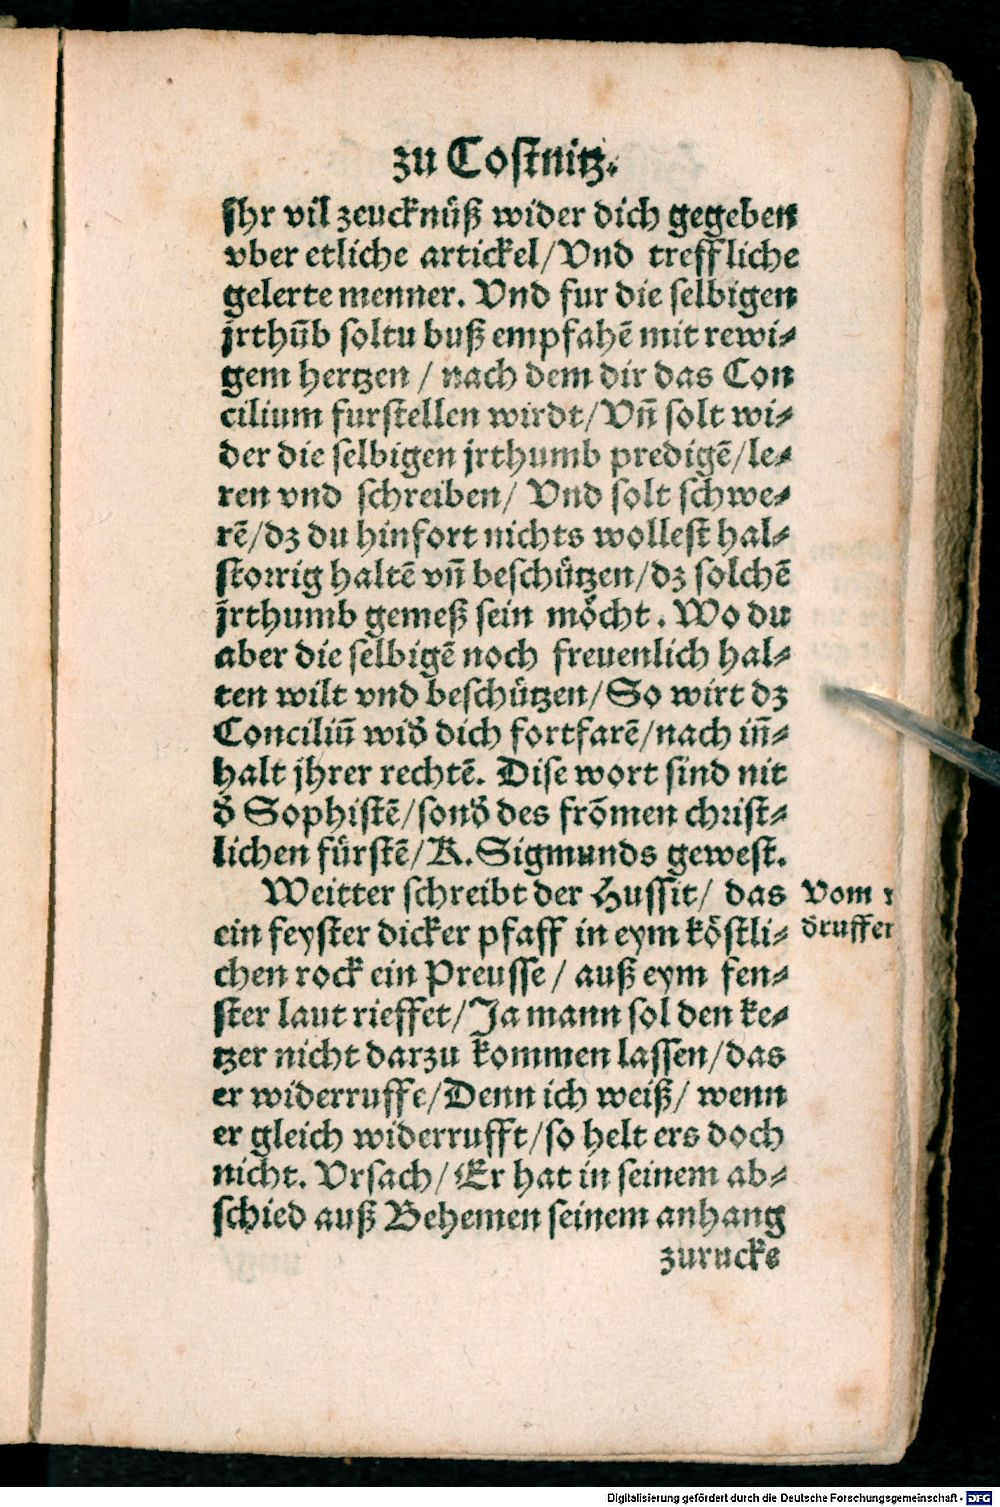 zu Costnitz.
Ihr vil zeucknüß wider dich gegeben
vber etliche artickel/Vnd treffliche
gelerte menner. Vnd fur die selbigen
jrthūb soltu buß empfahē mit rewi⸗
gem hertzen / nach dem dir das Con
cilium furstellen wirdt/Vñ solt wi⸗
der die selbigen jrthumb predigē/le⸗
ren vnd schreiben/ Vnd solt schwe⸗
rē/dz du hinfort nichts wollest hal⸗
storrig haltē vñ beschützen/dz solchē
jrthumb gemeß sein möcht. Wo du
aber die selbigē noch freuenlich hal⸗
ten wilt vnd beschützen/So wirt dz
Conciliū wid̕ dich fortfarē/nach iñ⸗
halt jhrer rechtē. Dise wort sind nit
d̕ Sophistē/sond̕ des frōmen christ⸗
lichen fürstē/K. Sigmunds gewest.
Weitter schreibt der Hussit/ das
ein feyster dicker pfaff in eym köstli⸗
chen rock ein Preusse / auß eym fen⸗
ster laut rieffet/Ja mann sol den ke⸗
tzer nicht darzu kommen lassen/das
er widerruffe/Denn ich weiß/ wenn
er gleich widerrufft/so helt ers doch
nicht. Vrsach/ Er hat in seinem ab⸗
schied auß Behemen seinem anhang
zurucks
Vom
druffen
Digitalisierung gefördert durch die Deutsche Forschungsgemeinschaft - DFG